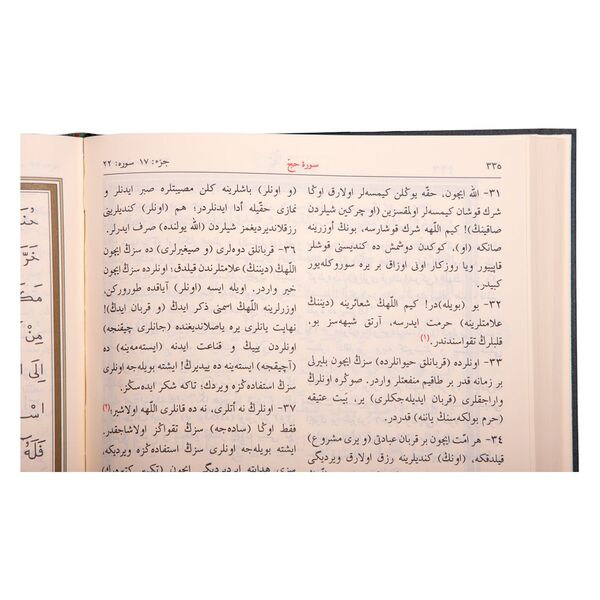 ٣٣٥
سورۀ حج
جزء: ١٧ سوره: ٢٢
٣١- الله ايچون، حقّه يوكلن كيمسه‌لر اولارق اوڭا
شرك قوشان كيمسه‌لر اولمقسزين (او چركين شيلردن
صاقينڭ)! كيم اللّهه شرك قوشارسه، بونڭ اوزرينه
صانكه (او)، كوكدن دوشمش ده كنديسنى قوشلر
قاپييور ويا روزكار اونى اوزاق بر يره سوروكله‌يور
كبيدر.
٣٢- بو (بويله)در! كيم اللّهڭ شعائرينه (ديننڭ
علامتلرينه) حرمت ايدرسه، آرتق شبهه‌سز بو،
قلبلرڭ تقواسندندر. (١)
٣٣- اونلرده (قربانلق حيوانلرده) سزڭ ايچون بليرلى
بر زمانه قدر بر طاقيم منفعتلر واردر. صوڭره اونلرڭ
واراجقلرى (قربان ايديله‌جكلرى) ير، بَيت عتيقه
(حرم يولكه‌سنڭ ياننه) قدردر.
٣٤- هر امّت ايچون بر قربان عبادتى (و يرى مشروع)
قيلدقكه، (اونڭ) كنديلرينه رزق اولارق ويرديگى
(و اونلر) باشلرينه كلن مصيبتلره صبر ايدنلر و
نمازى حقّيله أدا ايدنلردر؛ هم (اونلر) كنديلرينى
رزقلانديرديغمز شيلردن (الله يولنده) صرف ايدرلر.
٣٦- قربانلق دوه‌لرى (و صيغيرلرى) ده سزڭ ايچون
اللّهڭ (ديننڭ) علامتلرندن قيلدق؛ اونلرده سزڭ ايچون
خير واردر. اويله ايسه (اونلر) آياقده طورورکن،
اوزرلرينه اللّهڭ اسمنى ذكر ايدڭ (و قربان ايدڭ)!
نهايت يانلرى يره ياصلانديغنده (جانلرى چيقنجه)
اونلردن يييڭ و قناعت ايدنه (ايسته‌مه‌ينه) ده
(آچيقجه) ايسته‌ينه ده ييديرڭ! ايشته بويله‌جه اونلرى
سزڭ استفاده‌ڭزه ويردك؛ تاكه شكر ايده‌سڭز.
٣٧- اونلرڭ نه أتلرى، نه ده قانلرى اللّهه اولاشير؛ (٢)
فقط اوڭا (ساده‌جه) سزڭ تقواڭز اولاشاجقدر.
ايشته بويله‌جه اونلرى سزڭ استفاده‌ڭزه ويرديكه،
سزى هدايته ايرديرديگى ايچون